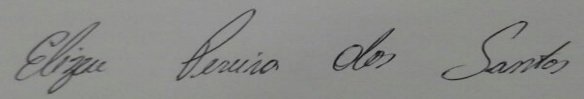 Elizeu Pereira dos Santos